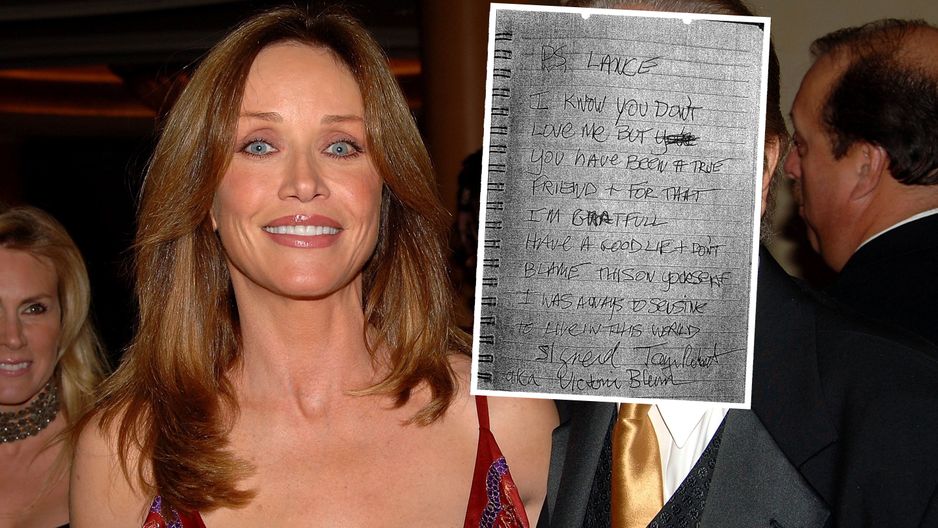 PS, LANCE
I KNOW YOU DON'T
LOVE ME BUT
YOU HAVE BEEN A TRUE
FRIEND + FOR THAT
I'M GRATFULL
HAVE A GOOD LIFE + DON'T
BLAME THIS ON YOURSELF
I WAS AWAYS TO SENSITIVE
TO LIVE IN THIS WORLD
Signed
aka Victoria